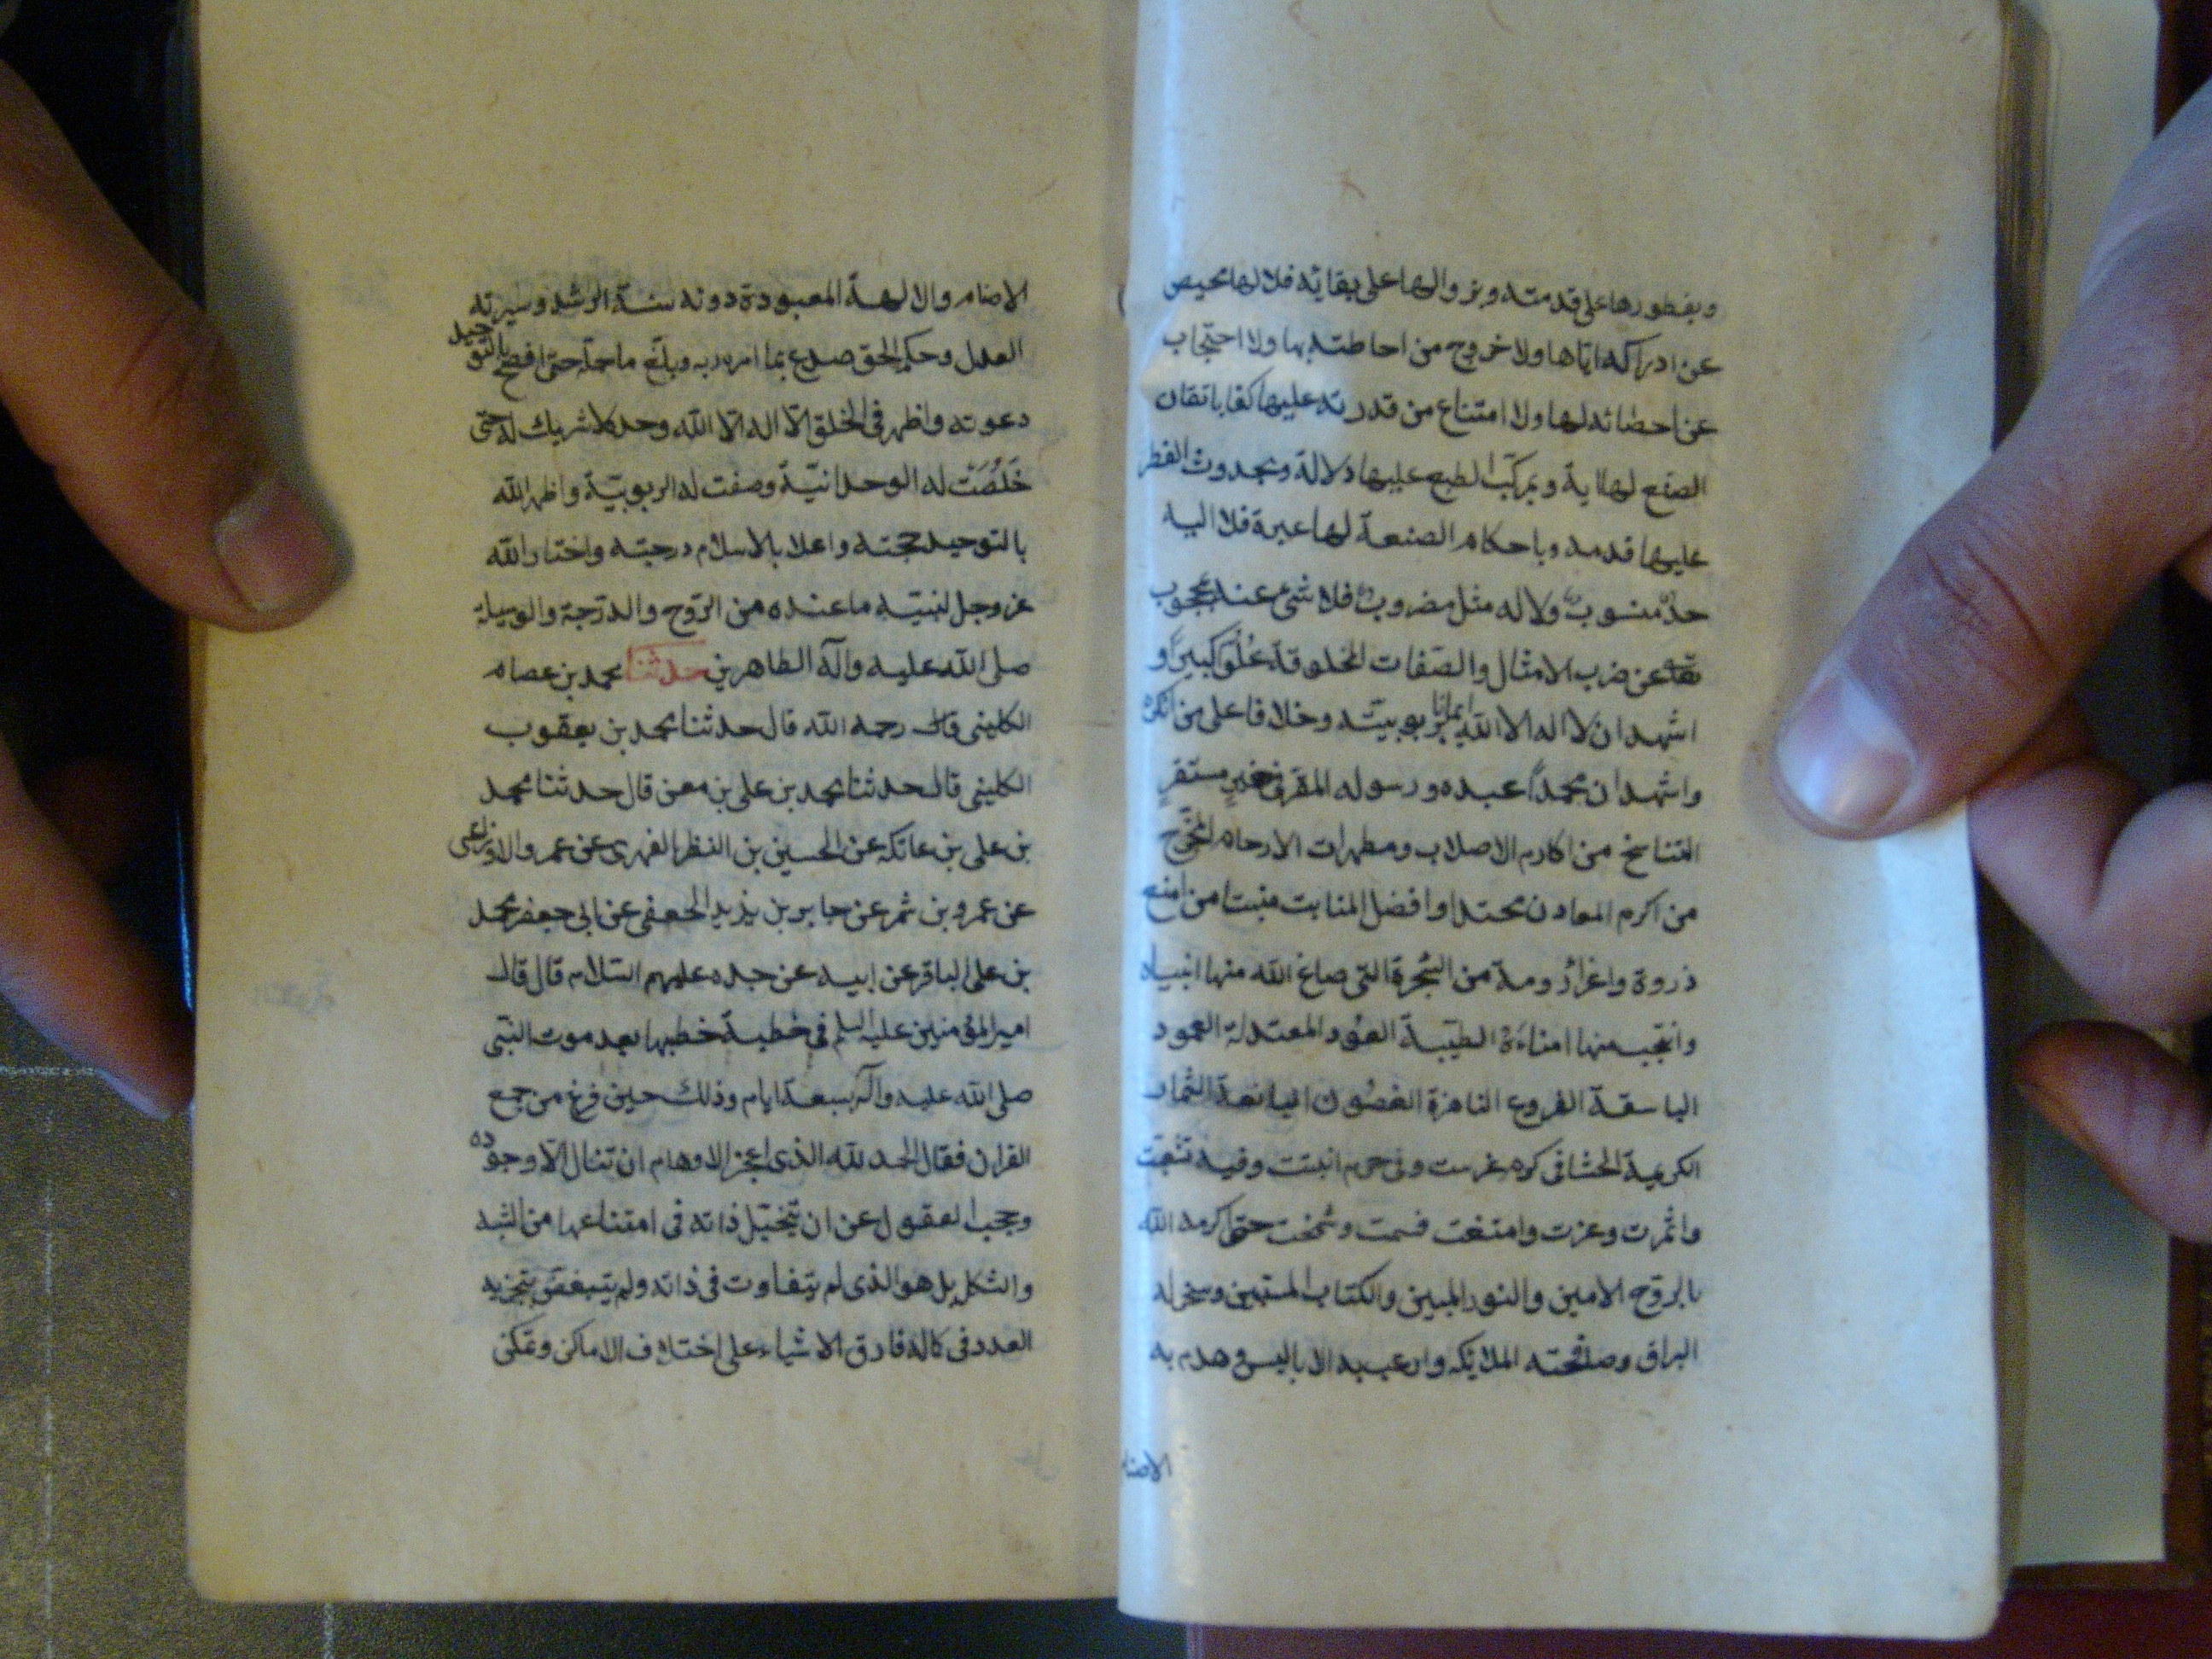 وبفطورها على قدمته وبزوالها على بقائه فلا لها محيص
عن ادراكه اياها ولا خروج من احاطته بها ولا احتجاب
عن احصائه لها ولا امتناع من قدرته عليها كفا باتقان
الصنع لها اية وبمركب الطبع عليها دلالة وبحدوث الفطر
عليها قدمه وباحكام الصنعة لها عبرة فلا اليه
حد منسوب ولا له مثل مضروب فلا شئ عنه بمحجوب
تعه عن ضرب الامثال والصفات المخلوقة علوا كبيرا و
اشهد ان لا اله الا الله ايمانا بربوبيته وخلافا على من انكره
واشهد ان محمدا عبده ورسوله المقر في خير مستقر
المتناسخ من اكارم الاصلاب ومطهرات الارحام المخرج
من اكرم المعادن محتدا وافضل المنابت منبتا من امنع
ذروة واعز ارومة من الشجرة التي صاغ الله منها انبياه
وانتجب منها امناءه الطيبة العود المعتدلة العمود
الباسقة الفروع الناضرة الغصون اليانعة الثمار
الكريمة الحشا في كرم غرست وفي حرم انبتت وفيه تشعبت
واثمرت وعزت وامتنعت فسمت وشمخت حتى اكرمه الله
بالروح الامين والنور المبين والكتاب المستبين وسخر له
البراق وصافحته الملائكه وارعب به الاباليس وهدم به
الاصنام
الاصنام والالهة المعبودة دونه سنة الرشد وسيرته
العدل وحكم الحق صدع بما امره ربه وبلغ ما حمله حتى افصح بالتوحيد
دعوته واظهر في الخلق الا اله الا الله وحده لا شريك له حتى
خلصت له الوحدانية وصفت له الربوبية واظهر الله
بالتوحيد حجته واعلا بالاسلام درجته واختار الله
عز وجل لنبيه ما عنده من الروح والدرجة والوسيلة
صلى الله عليه وآله الطاهرين حدثنا محمد بن عصام
الكليني قال رحمه الله قال حدثنا محمد بن يعقوب
الكليني قال حدثنا محمد بن على بن معن قال حدثنا محمد
بن على بن عاتكه عن الحسين بن النظر الفهرى عن عمر والاوزاعى
عن عمرو بن شمر عن جابر بن يزيد الجعفى عن ابي جعفر محمد
بن على الباقر عن ابيه عن جده عليهم السلام قال قال
امير المؤمنين عليه السلم في خطبة خطبها بعد موت النبي
صلى الله عليه وآله بسبعة ايام وذلك حين فرغ من جمع
القران فقال الحمد لله الذى اعجز الاوهام ان تنال الا وجوده
وحجب العقول عن ان تتخيل ذاته في امتناعها من الشبه
والشكل بل هو الذى لم يتفاوت في ذاته ولم يتبعض بتجزيه
العدد في كماله فارق الاشياء على اختلاف الاماكن وتمكن